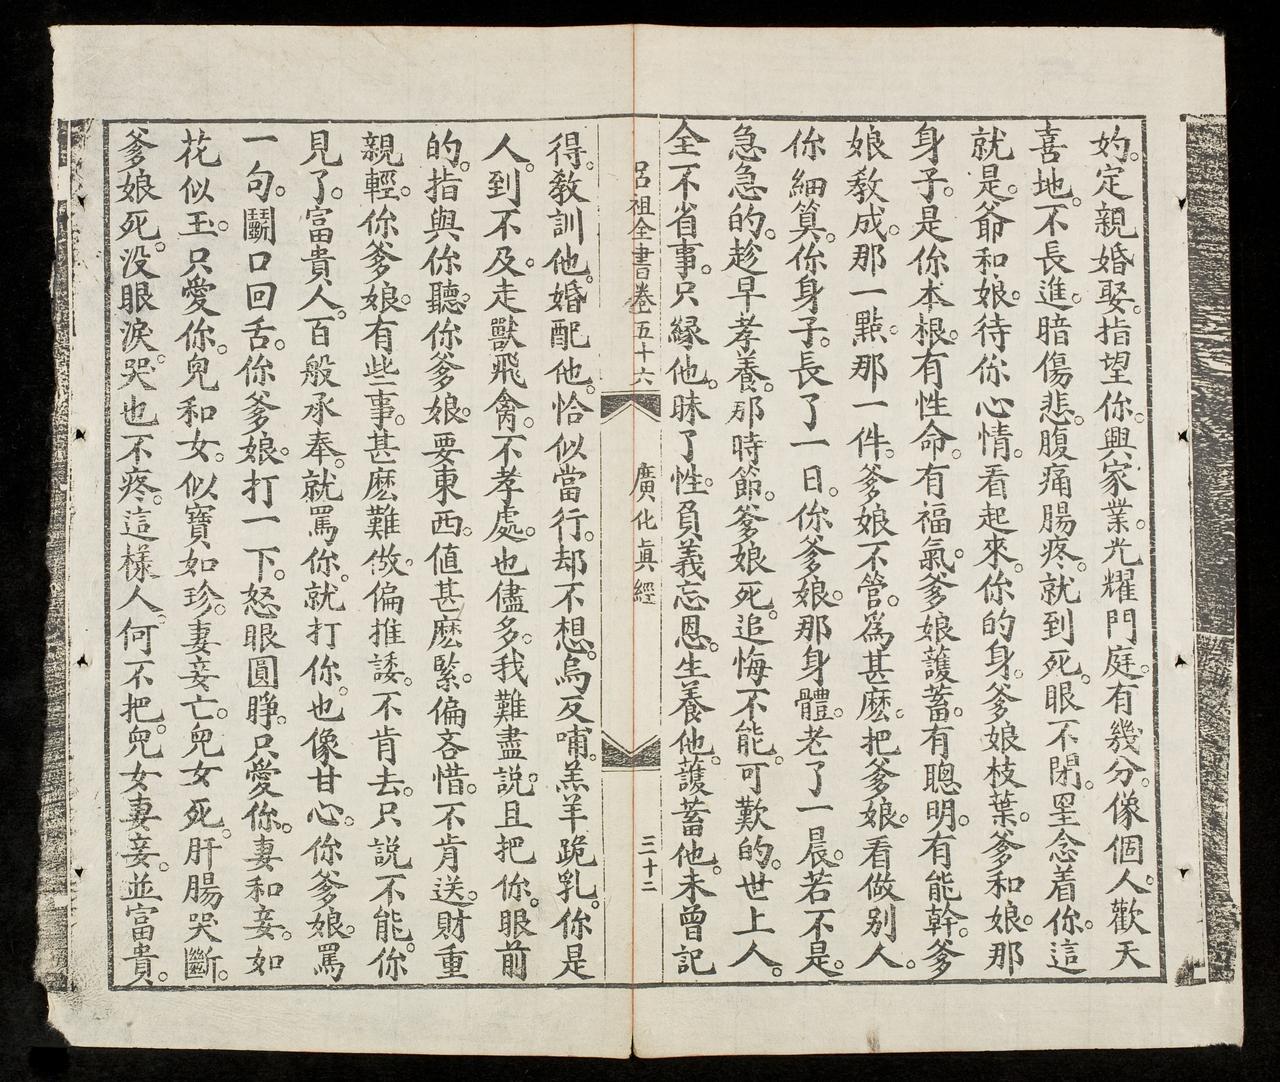 妁。定親婚娶。指望你。興家業。光耀門庭。有幾分。像個人。歡天
喜地。不長進。暗傷悲。腹痛腸疼。就到死。眼不閉。罣念着你。這
就是。爺和娘。待你心情。看起來。你的身。爹娘枝葉。爹和娘。那
身子。是你本根。有性命。有福氣。爹娘護蓄。有聰明。有能幹。爹
娘教成。那一點。那一件。爹娘不管。爲甚麽。把爹娘。看做別人。
你細算。你身子。長了一日。你爹娘。那身體。老了一晨。若不是。
急急的。趁早孝養。那時節。爹娘死。追悔不能。可歎的。世上人。
全不省事。只緣他。昧了性。負義忘恩。生養他。護蓄他。未曾記
呂祖全書卷五十六 廣化眞經 三十二
得。教訓他。婚配他。恰似當行。却不想。烏反哺。羔羊跪乳。你是
人。到不及。走獸飛禽。不孝處。也儘多。我難盡説。且把你。眼前
的。指與你聽。你爹娘。要東西。値甚麽。緊。偏吝惜。不肯送。財重
親輕。你爹娘。有些事。甚麽難做。偏推諉。不肯去。只説不能。你
見了。富貴人。百般承奉。就罵你。就打你。也像甘心。你爹娘。罵
一句。鬭口回舌。你爹娘。打一下。怒眼圓睜。只愛你。妻和妾。如
花似玉。只愛你。兒和女。似寶如珍。妻妾亡。兒女死。肝腸哭斷。
爹娘死。没眼淚。哭也不疼。這樣人。何不把。兒女妻妾。並富貴。